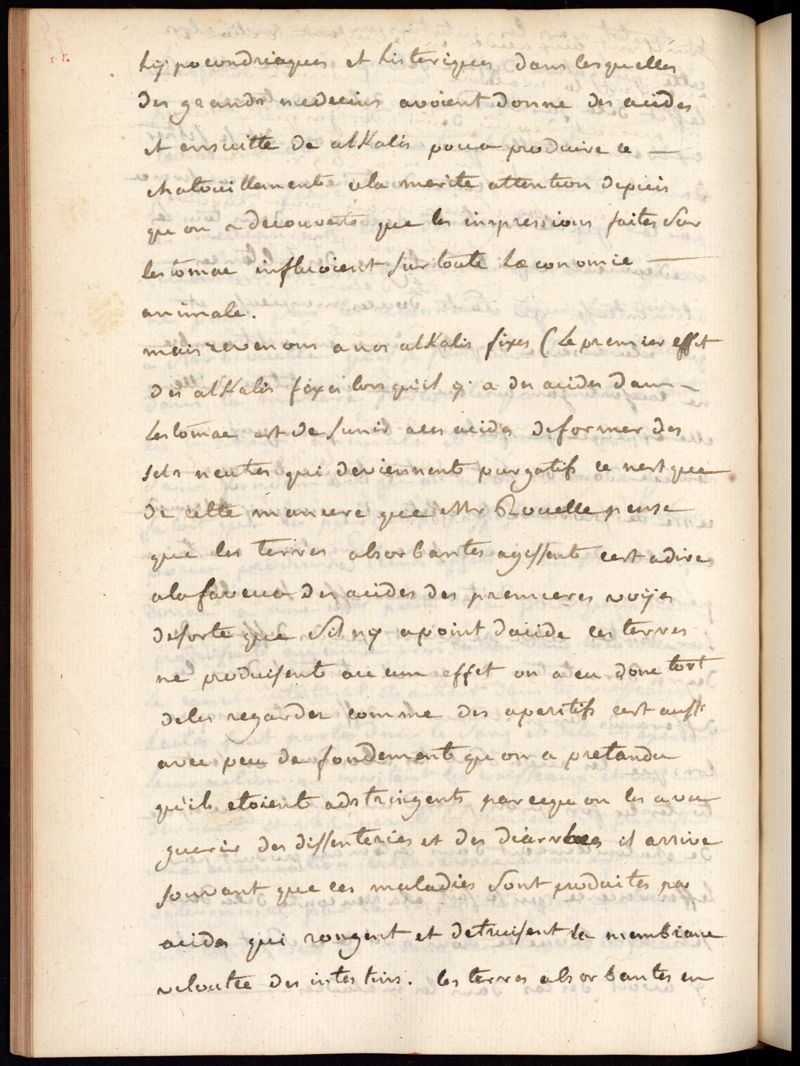 hÿpocondriaques et histeriques dans lesquelles
des grands medecins avoient donne des acides
et ensuitte de alKalis pour produire ce —
chatouillement cela merite attention depuis
qu on a decouverte que les impressions faites Sur
lestômac influoient Sur toute l'œconomie —
animale.
mais revenons a nos alKalis fixes (le premier effet
des alKalis fixes lorsquil ÿ a des acides dans —
lestômac est de Sunir a ces acides deformer des
sels neutres qui deviennent purgatifs ce nest que
de cette maniere que Mr Rouelle pense
que les terres absorbantes agissent cest adire
alafaveur des acides des premieres voÿes
desorte que Sil nÿ apoint dacide ces terres
ne produisent aucun effet on a eu donc tort
deles regarder comme des aperitifs cest aussi
avec peu de fondement qu on a pretandu
quils etoient adstringents parcequ on les a vu
guerir des dissenteries et des diarrhees il arrive
souvant que ces maladies Sont produites par
acides qui rongent et detruisent la membrane
veloutée des intestins. les terres absorbantes en